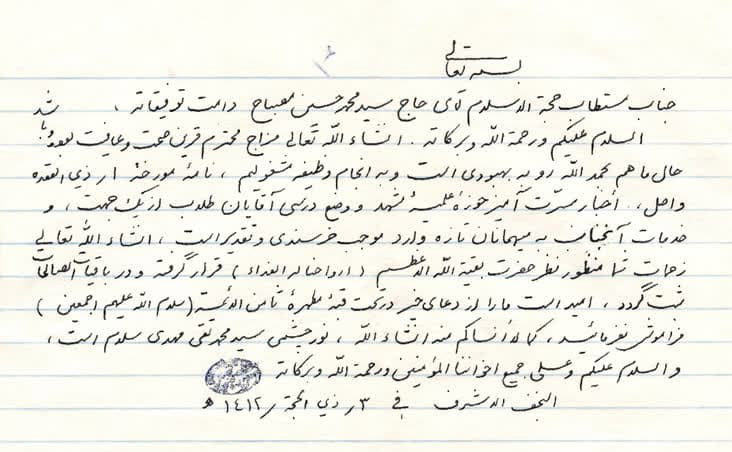 بسمه تعالی
جناب مستطاب حجة الاسلام آقای حاج سید محمد حسین مصباح دامت توفیقاته ،
السلام علیکم ورحمة الله وبرکاته . انشاء الله تعالی مزاج محترم قرین صحت وعافیت بوده باشد
حال ما هم بحمد الله رو به بهبودی است وبه انجام وظیفه مشغولیم ، نامۀ مورخۀ ١ر ذي القعده
واصل ، أخبار مسرّت آمیز حوزۀ علمیۀ مشهد و وضع درسی آقایان طلاب از یک جهت ، و
خدمات آنجناب به میهمانان تازه وارد موجب خرسندی وتقدیر است ، انشاء الله تعالی
زحمات شما منظور نظر حضرت بقیة الله الاعظم (ارواحنا له الفداء) قرار گرفته و در باقیات الصالحات
ثبت گردد ، امید است ما را از دعای خیر در تحت قبۀ مطهرۀ ثامن الائمة (سلام الله علیهم اجمعین)
فراموش نفرمائید ، کما لا أنساکم منه انشاء الله ، نورچشمی سید محمد تقی مهدی سلام است ،
والسلام علیکم وعلى جمیع اخواننا المؤمنین ورحمة الله وبرکاته
النجف الاشرف في ٣ر ذي الحجة ر١٤١٢ ه